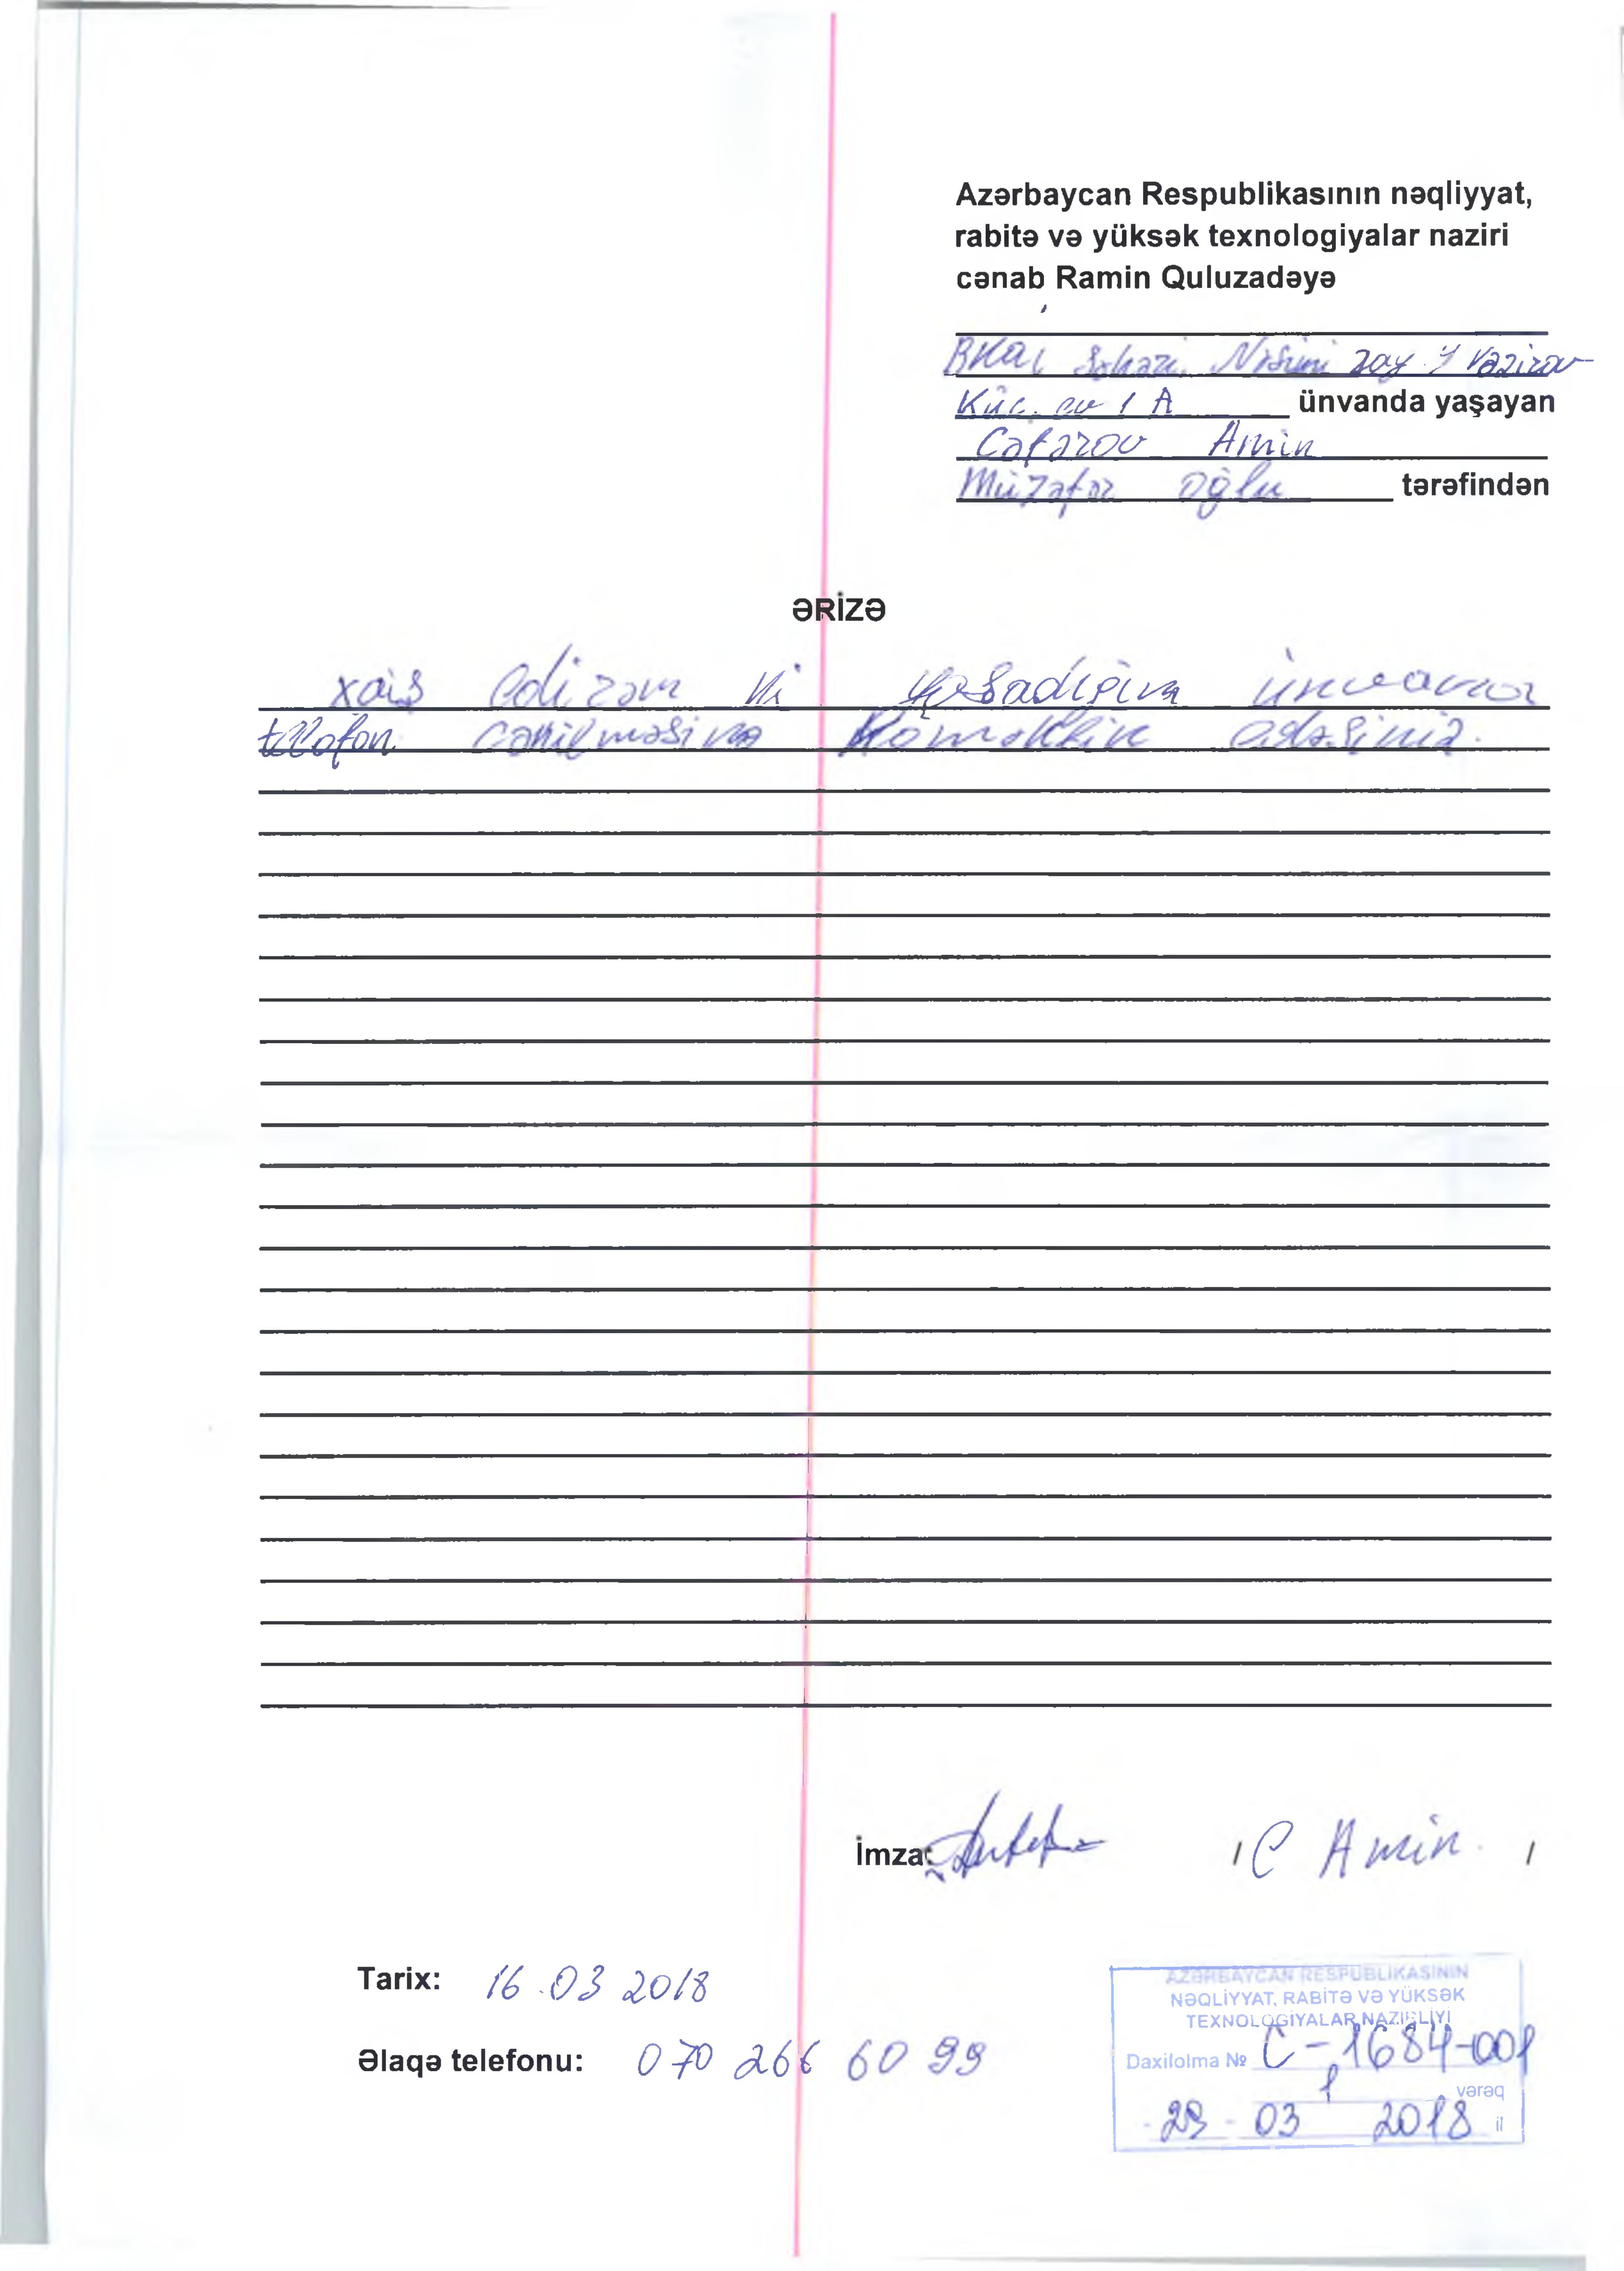 Azərbaycan Respublikasının nəqliyyat,
rabitə və yüksək texnologiyalar naziri
cənab Ramin Quluzadəyə
Bkaı şəhəri Nəsimi ray Y Vəzirov
Küç. ev 1 A ünvanda yaşayan
Cəfərov Amin
Müzəfər oğlu tərəfindən
ƏRİZƏ
xaiş edirəm ki yaşadığım ünvana
telefon çəkilməsinə köməklik edəsiniz.
İmza: C Amin.
Tarix: 16.03 2018
Əlaqə telefonu: 070 266 60 99
AZƏRBAYCAN RESPUBLIKASININ
NƏQLİYYAT, RABİTƏ VƏ YÜKSƏK
TEXNOLOGİYALAR NAZİRLİYİ
Daxilolma № C-1684-001
1 vərəq
29-03 2018 il